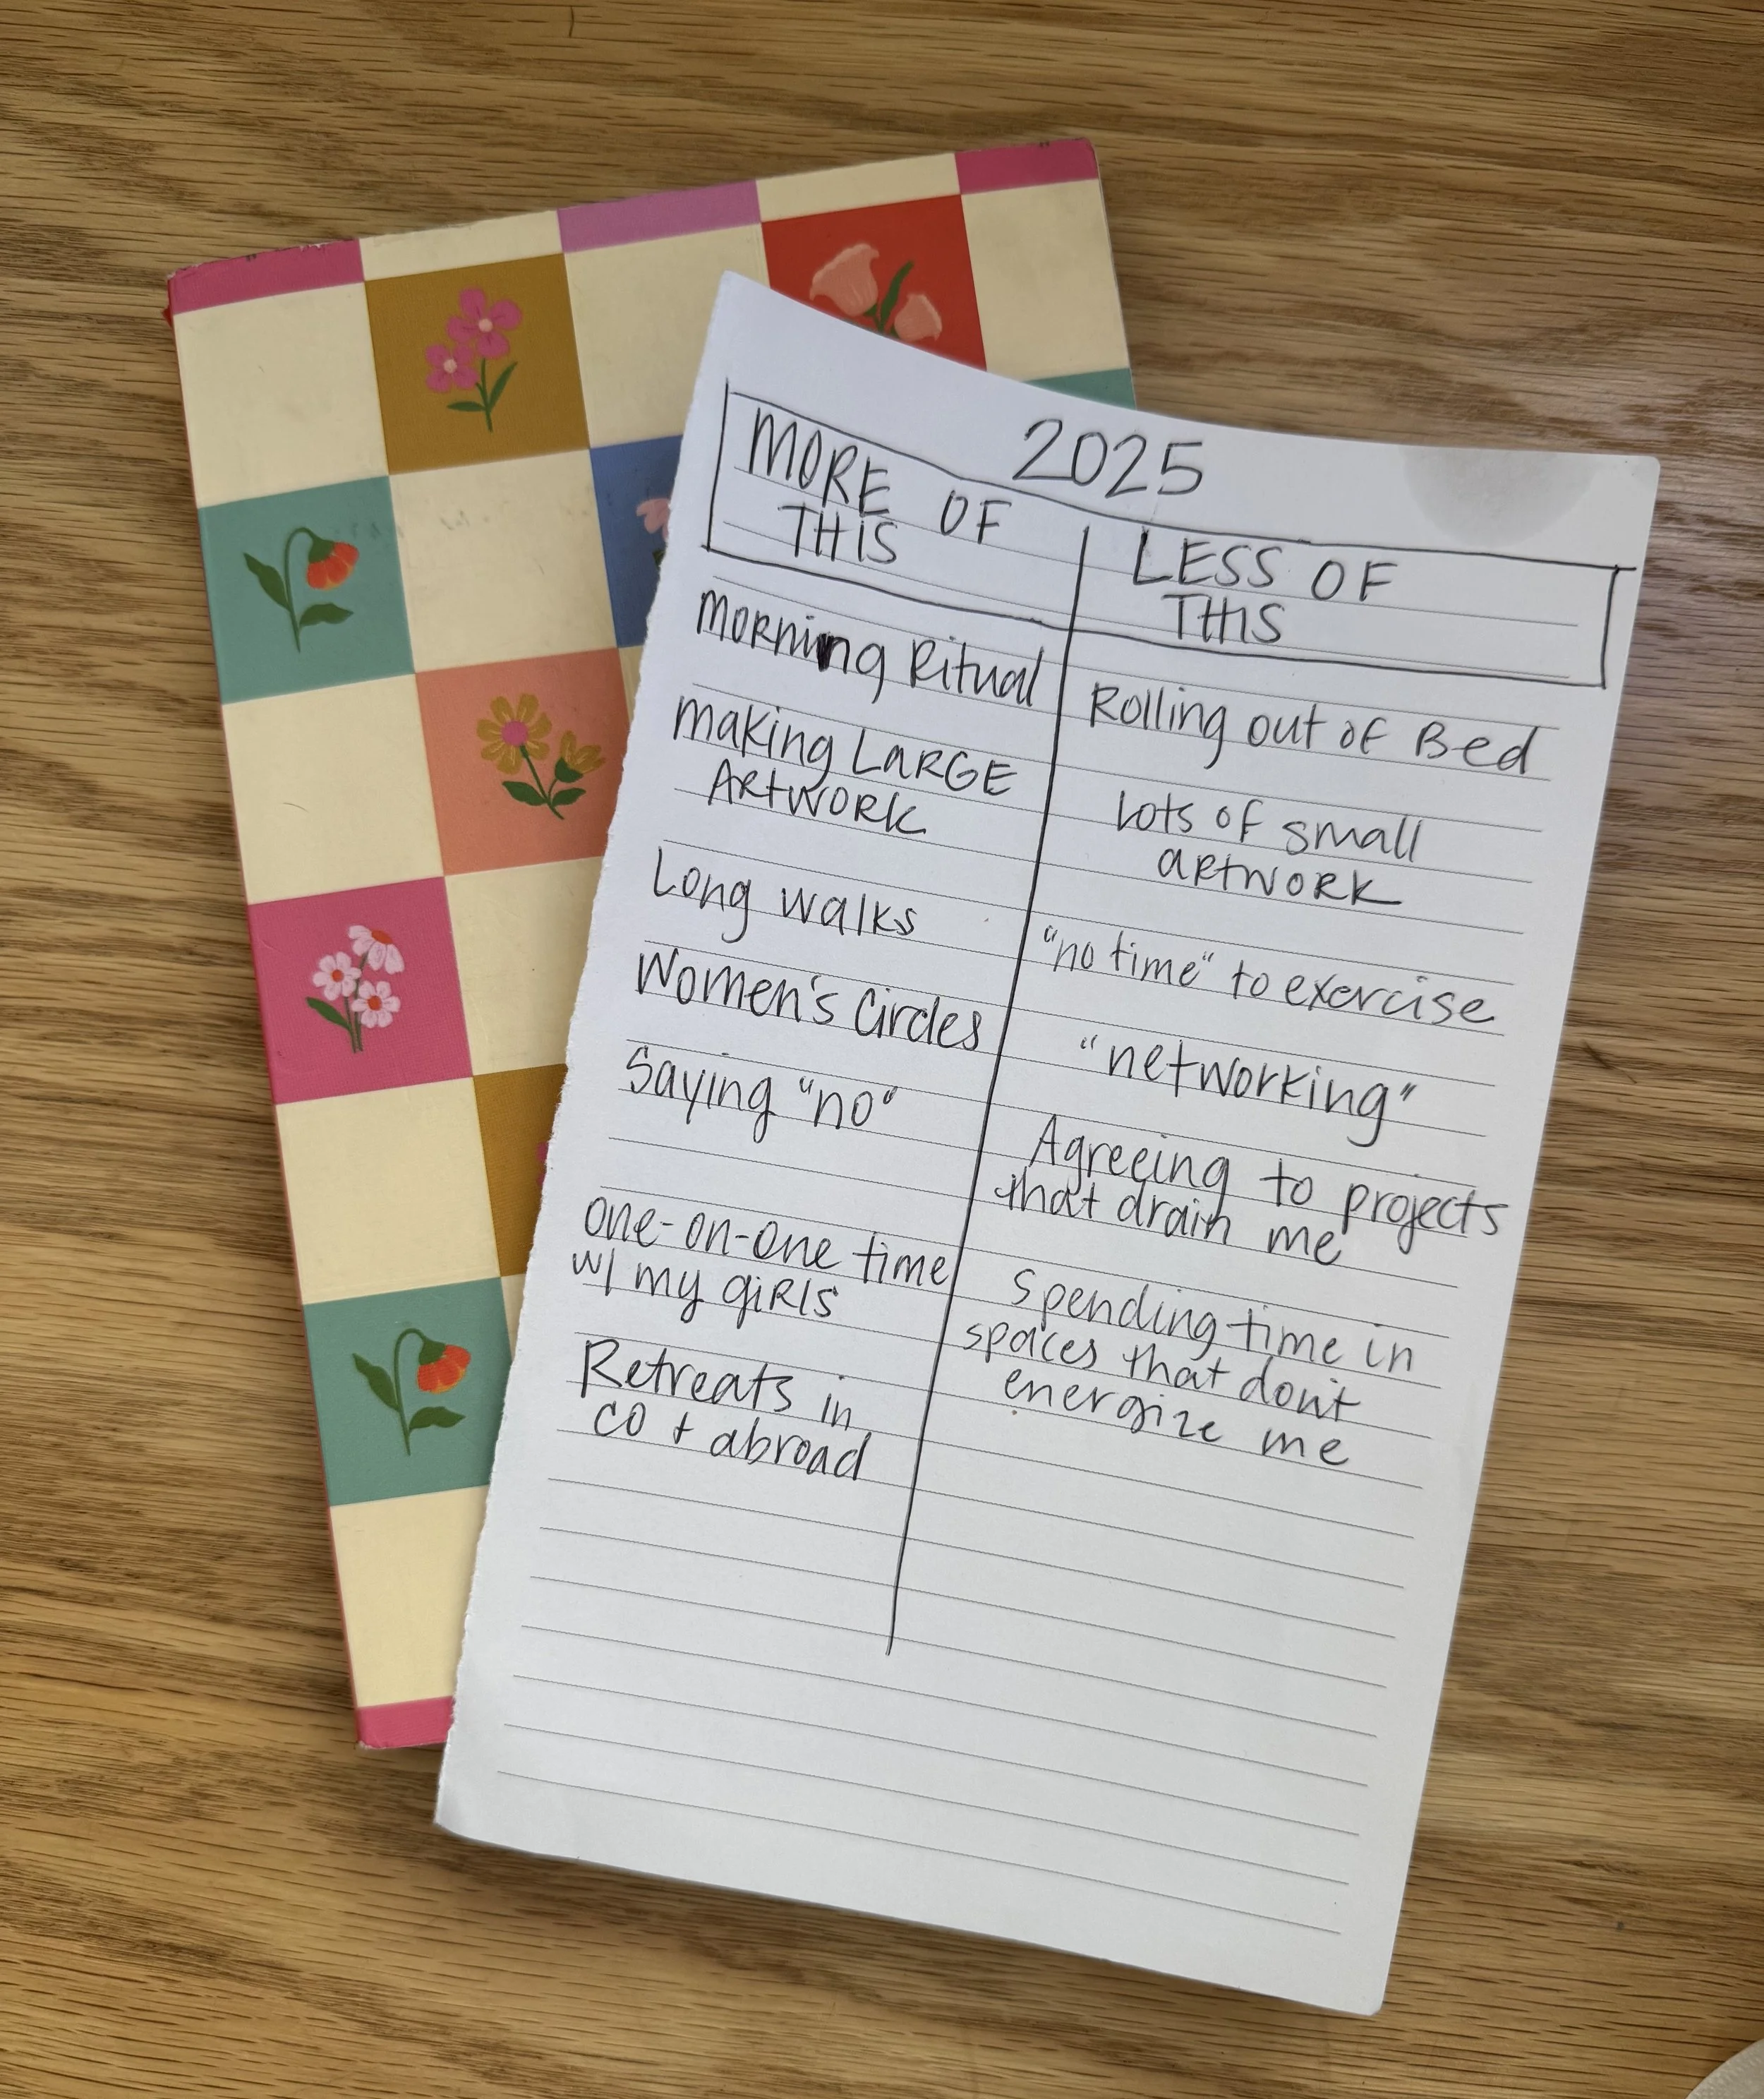 2025
MORE OF
THIS
Morning Ritual
making LARGE
ARTWORK
Long walks
Women's Circles
Saying "no"
one-on-one time
w/ my giRls
Retreats in
CO + abroad
LESS OF
THIS
Rolling out of Bed
Lots of small
aRtwoRK
"no time" to exercise
"networking"
Agreeing to projects
that drain me
Spending time in
spaces that don't
energize me